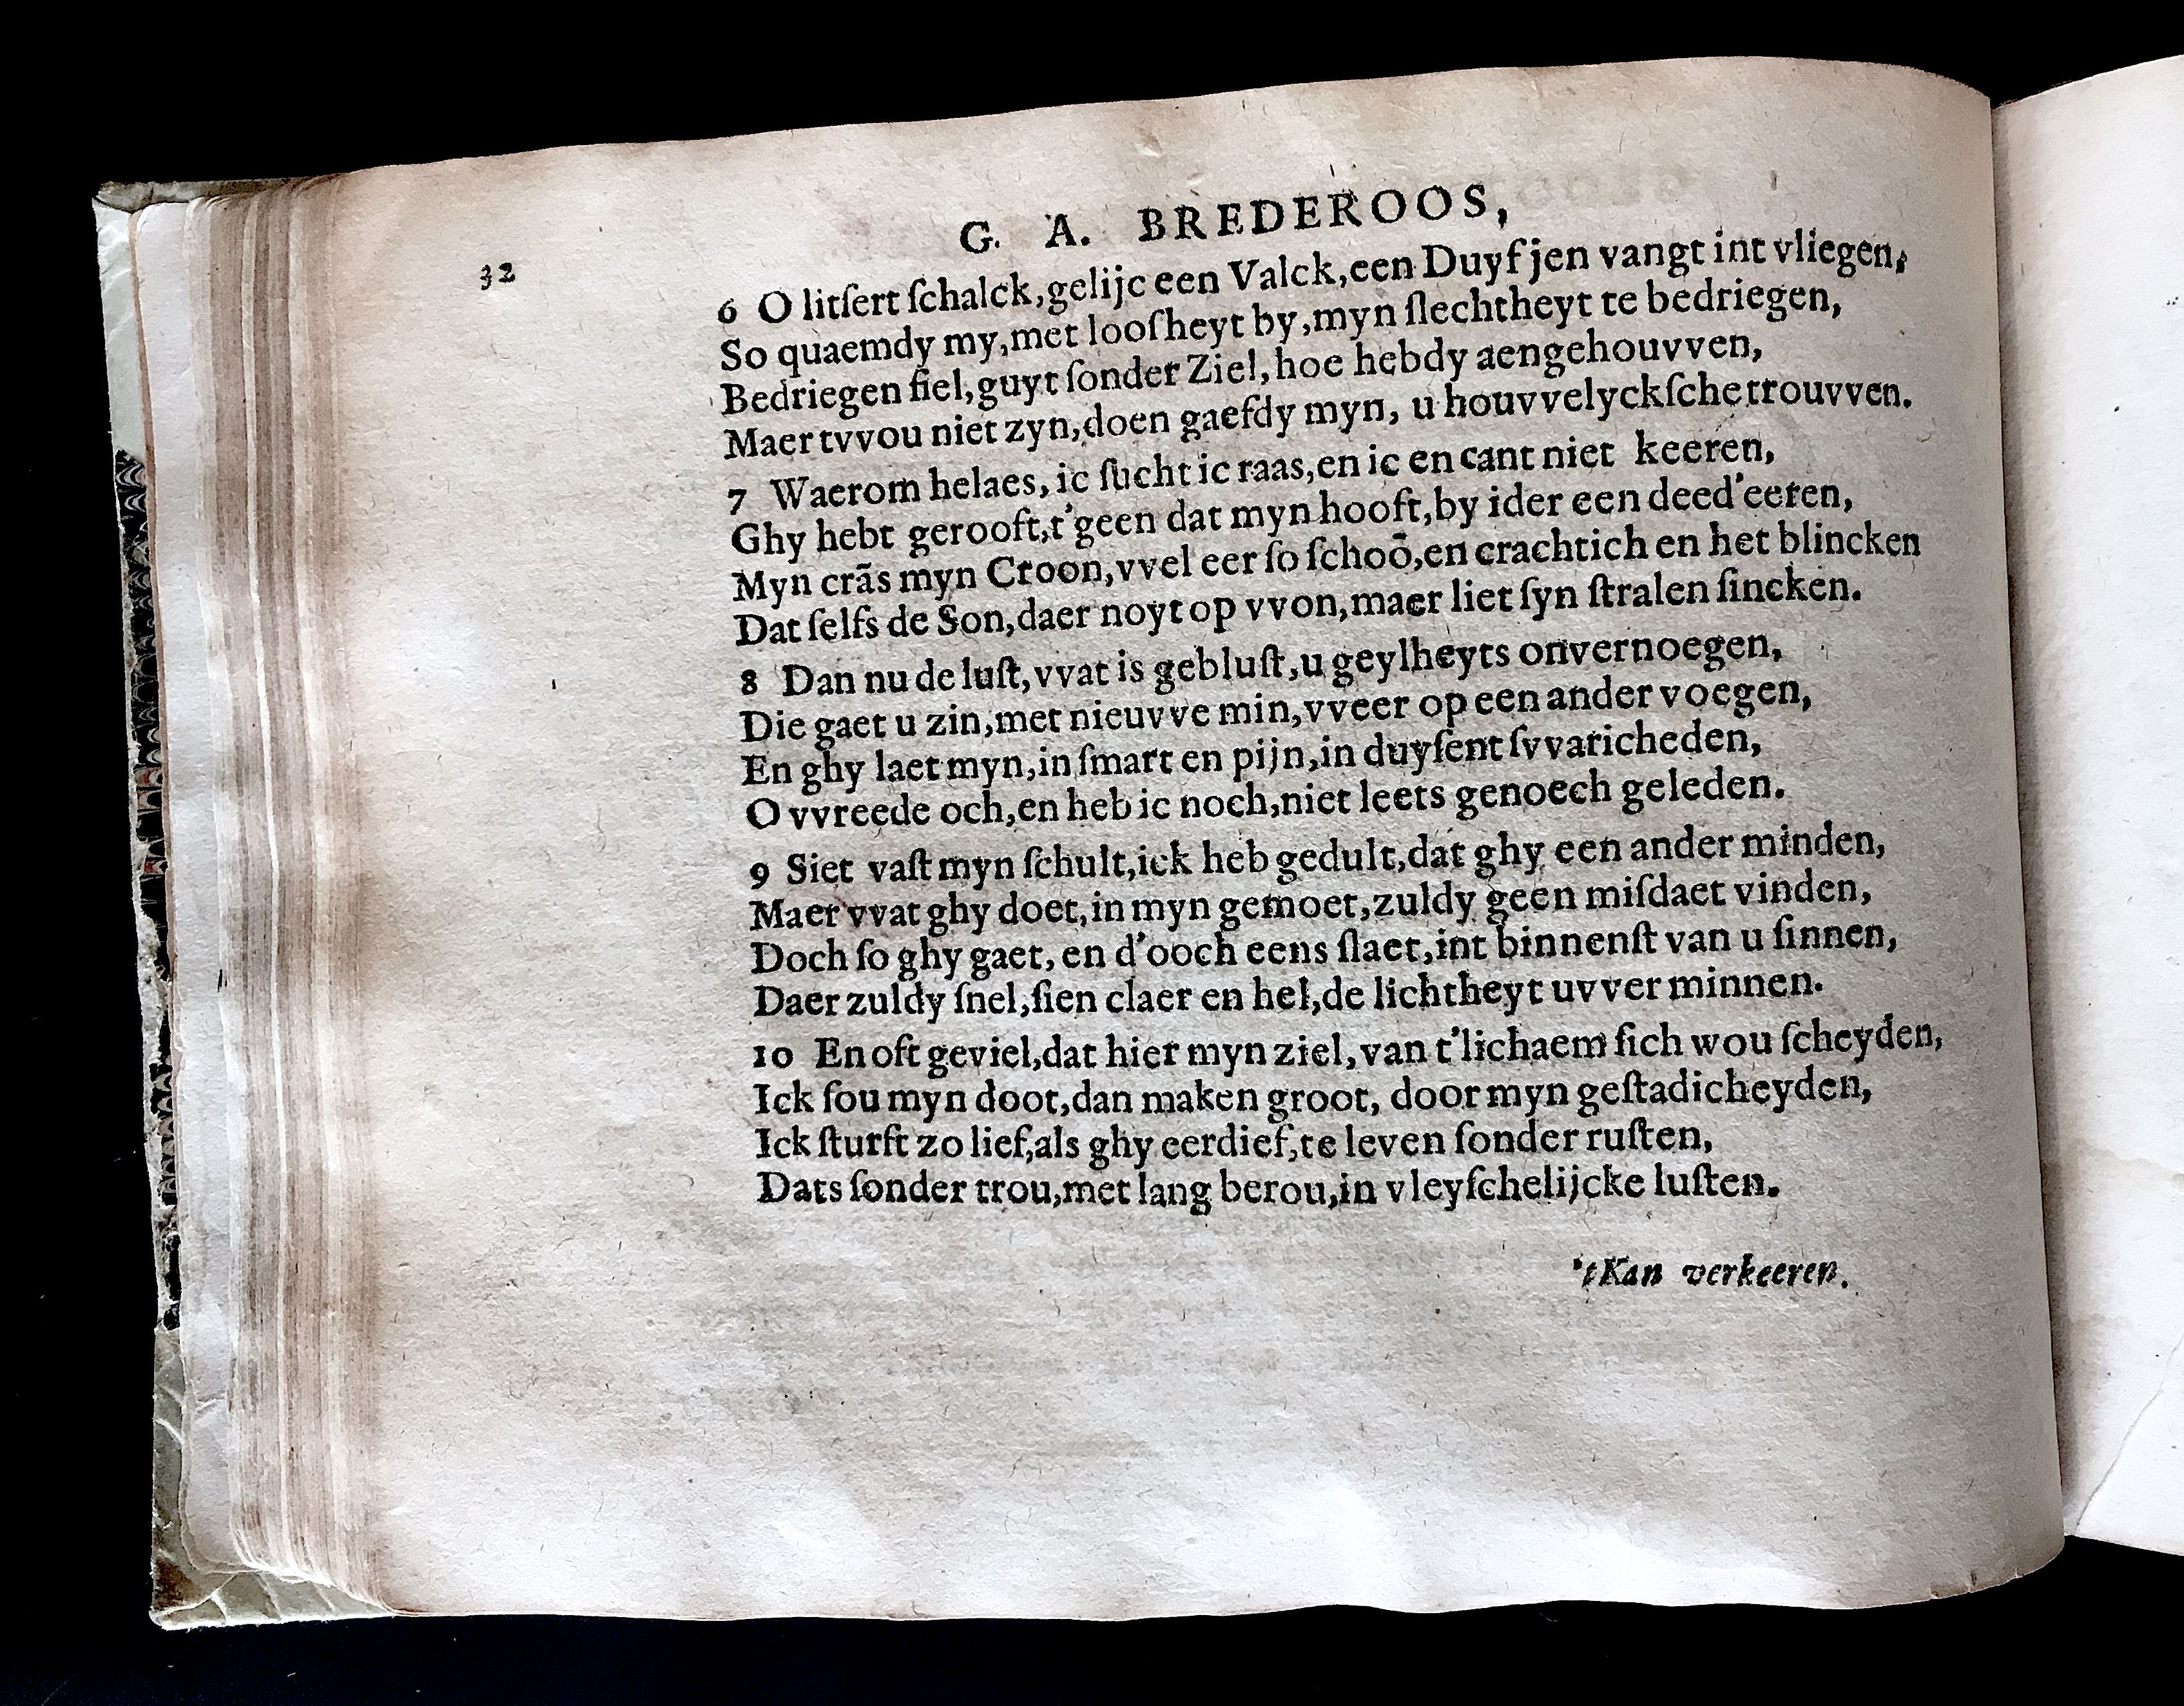 G. A. BREDEROOS,
32
6 O litſert ſchalck,gelijc een Valck,een Duyfjen vangt int vliegen,
So quaemdy my,met looſheyt by,myn ſlechtheyt te bedriegen,
Bedriegen fiel,guyt ſonder Ziel,hoe hebdy aengehouvven,
Maer tvvou niet zyn,doen gaefdy myn, u houvvelyckſche trouvven.
7 Waerom helaes, ic ſucht ic raas,en ic en cant niet keeren,
Ghy hebt gerooft,t'geen dat myn hooft,by ider een deed'eeren,
Myn crãs myn Croon,vvel eer ſo ſchoõ,en crachtich en het blincken
Dat ſelfs de Son,daer noyt op vvon,maer liet ſyn ſtralen ſincken.
8 Dan nu de luſt,vvat is gebluſt,u geylheyts onvernoegen,
Die gaet u zin,met nieuvve min,vveer op een ander voegen,
En ghy laet myn,in ſmart en pijn,in duyſent ſvvaricheden,
O vvreede och,en heb ic noch,niet leets genoech geleden.
9 Siet vaſt myn ſchult,ick heb gedult,dat ghy een ander minden,
Maer vvat ghy doet,in myn gemoet,zuldy geen miſdaet vinden,
Doch ſo ghy gaet, en d'ooch eens ſlaet,int binnenſt van u ſinnen,
Daer zuldy ſnel,ſien claer en hel,de lichtheyt uvver minnen.
10 En oft geviel,dat hier myn ziel,van t'lichaem ſich wou ſcheyden,
Ick ſou myn doot,dan maken groot, door myn geſtadicheyden,
Ick ſturft zo lief,als ghy eerdief,te leven ſonder ruſten,
Dats ſonder trou,met lang berou,in vleyſchelijcke luſten.
'tKan verkeeren.